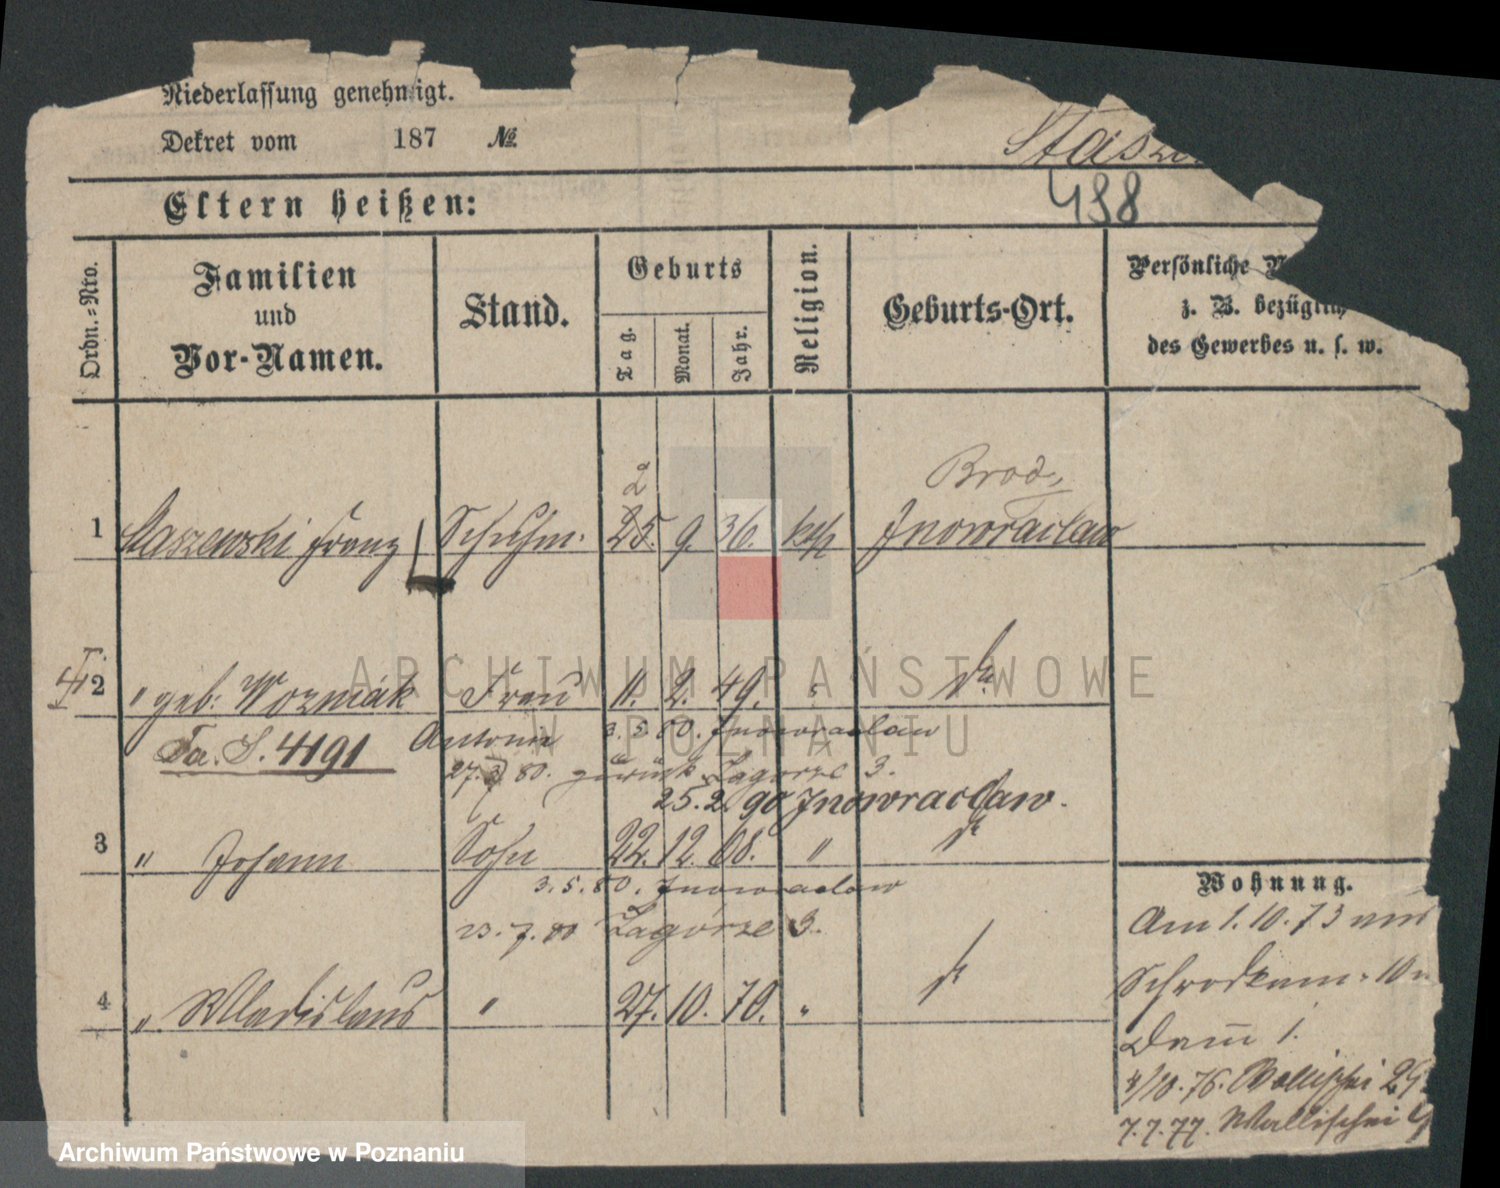 Niederlassung genehmigt.
Dekret vom 187 №
Stasze
498
Eltern heißen:
Ordn.=Nro.
Familien
und
Vor-Namen.
Stand.
Geburts
Tag.
Monat.
Jahr.
Religion.
Geburts-Ort.
Persönliche
z. B. bezüglich
des Gewerbes u. s. w.
2 Brod,
1 Staszewski Franz Schuhm. 25. 9. 36. kath Inowraclaw
2 " geb: Wozniak Frau 11. 2. 49. " do
Fa. S. 4191 Antonie 3. 5. 80. Inowraclaw
27. 80. zurück Zagorze 3.
25. 2. 90 Inowraclaw.
3 " Johann Sohn 22. 12. 68. " do
3. 5. 80. Inowraclaw
23. 7. 80 Zagorze 3.
4 " Wladislaus " 27. 10. 70. " do
Wohnung.
Am 1. 10. 73
Schrodkam: 10
Dam̄ 1.
4/10. 76. Wallischei 29
7. 7. 77. Wallischei
ARCHIWUM PAŃSTWOWE
W POZNANIU
Archiwum Państwowe w Poznaniu